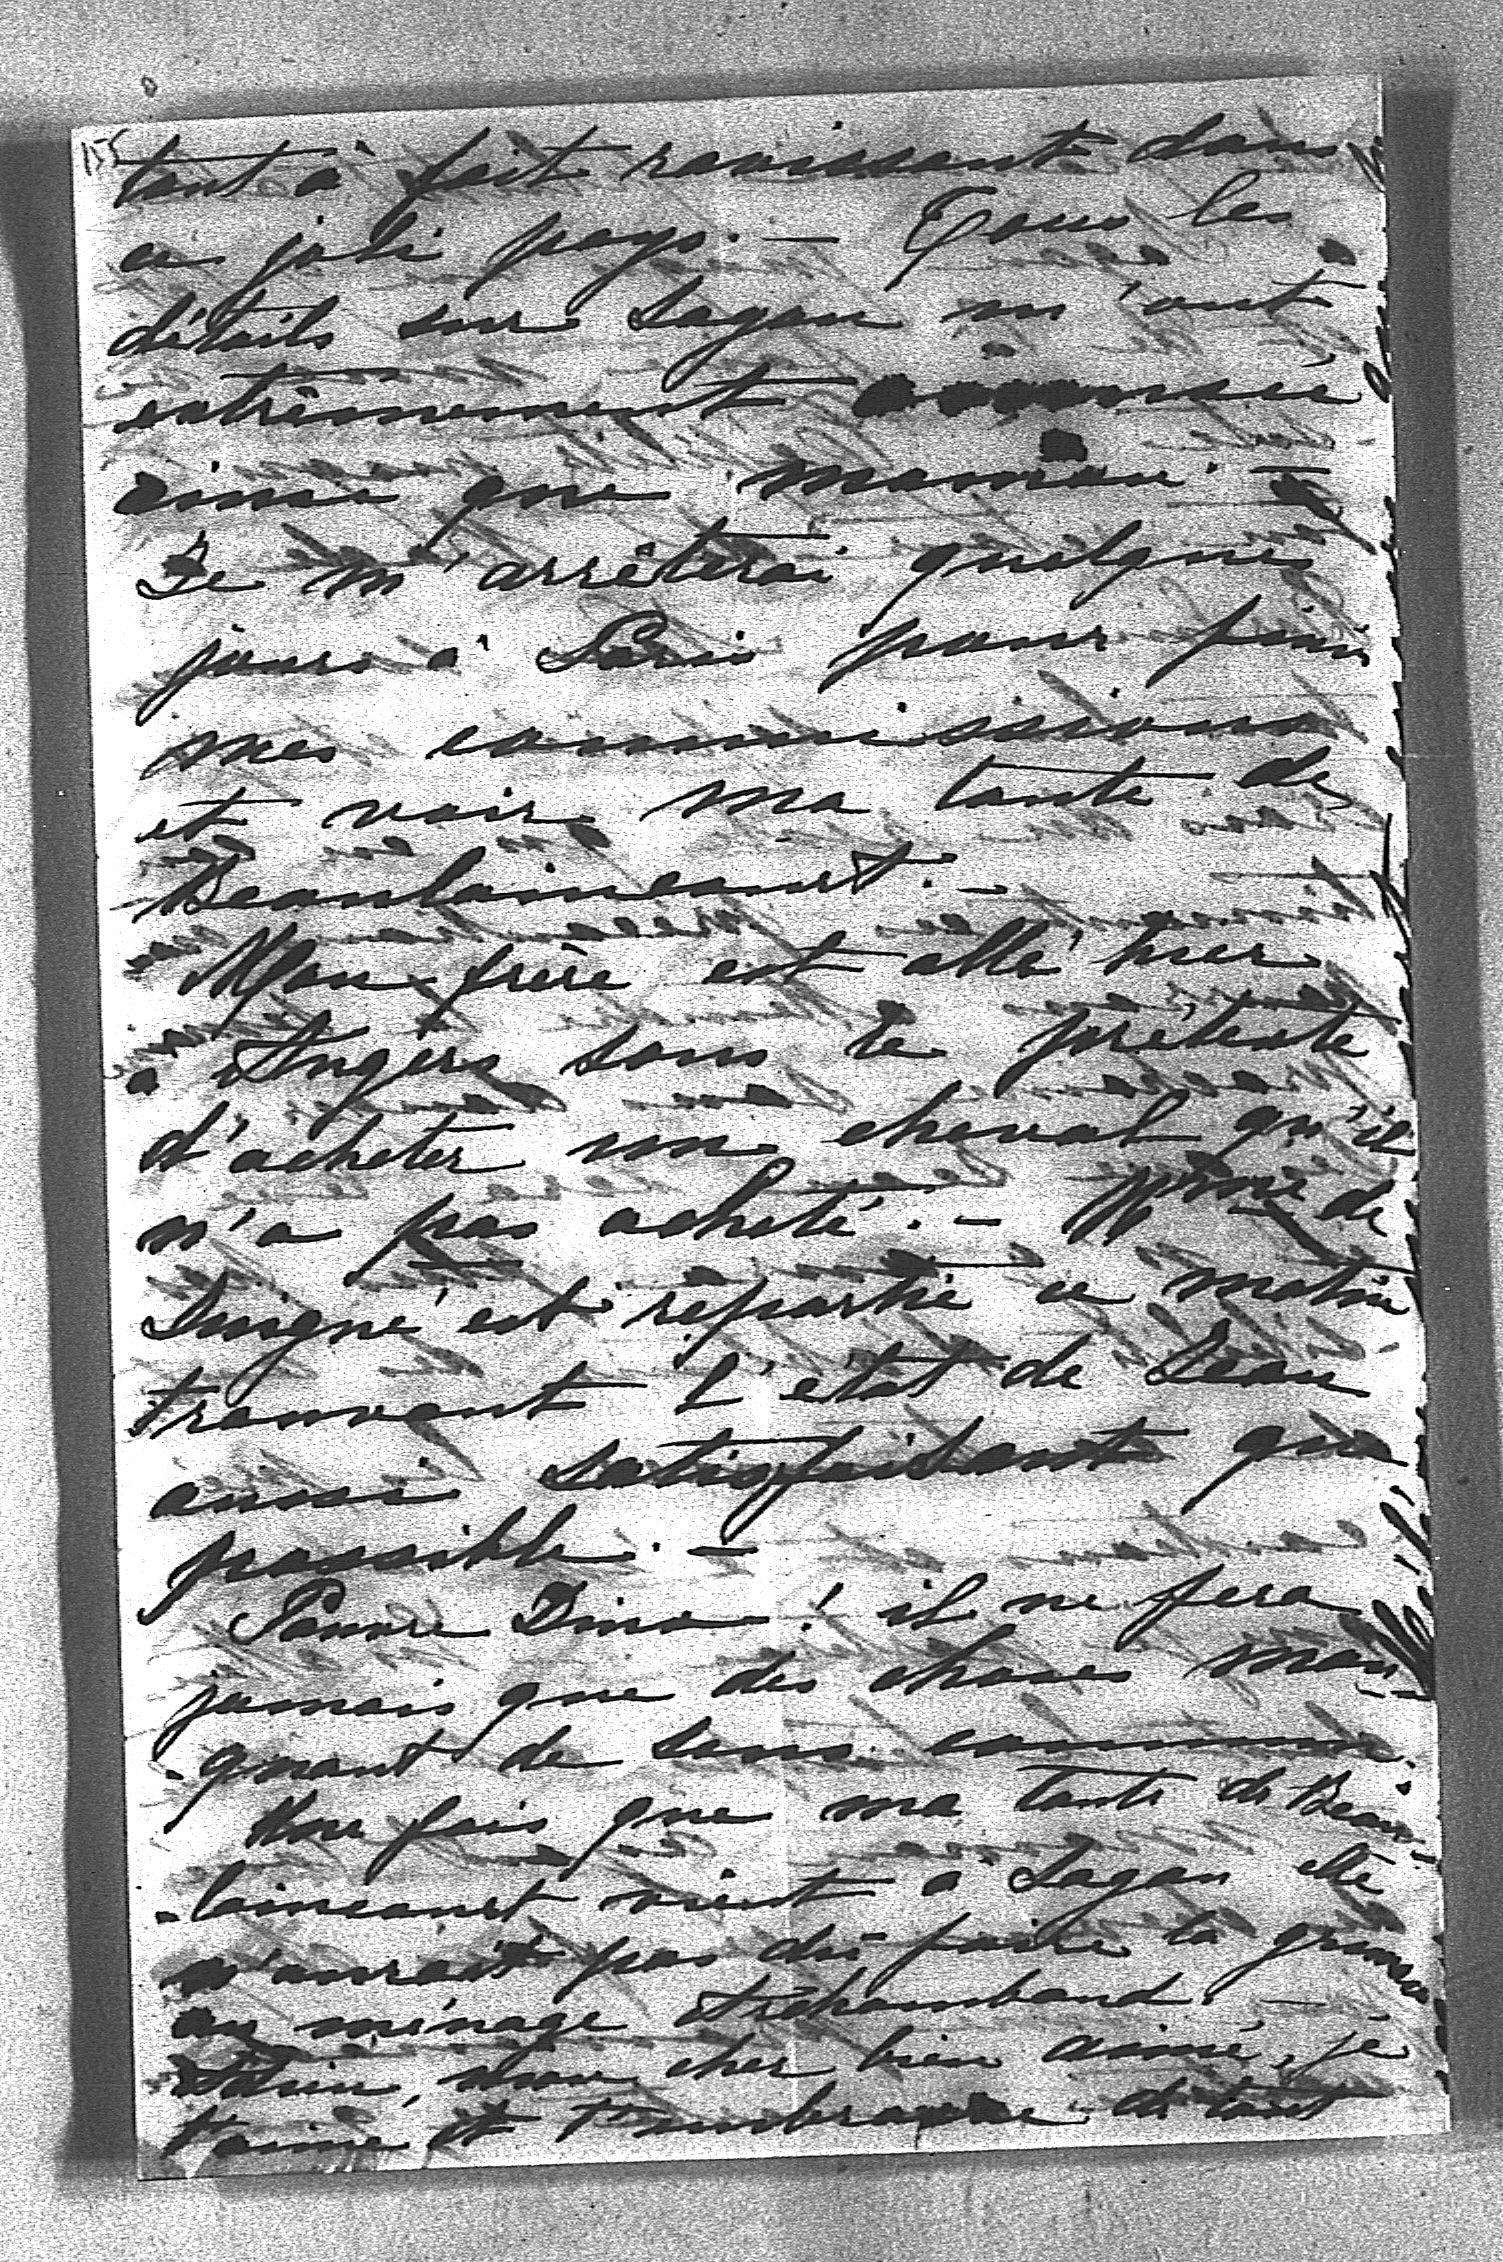 155
tout à fait ravissant dans
ce joli pays. — Tous les
détails sur Sagan m'ont
extrêmement amusée
ainsi que maman. —
Je m'arrêterai quelques
jours à Paris pour finir
mes commissions
et voir ma tante de
Beaulaincourt. —
Mon frère est allé hier
à Angers sous le prétexte
d'acheter un cheval qu'il
n'a pas acheté. — Mme de
Luigné est repartie ce matin
trouvant l'état de Jean
aussi satisfaisant que
possible. —
Pauvre Dino! il ne fera
jamais que des choses man-
-quant de sens commun.
Une fois que ma tante de Beau-
-laincourt vient à Sagan elle
n'aurait pas dû faire la grimace
au ménage
Adieu, mon cher bien aimé, je
t'aime et t'embrasse de tout